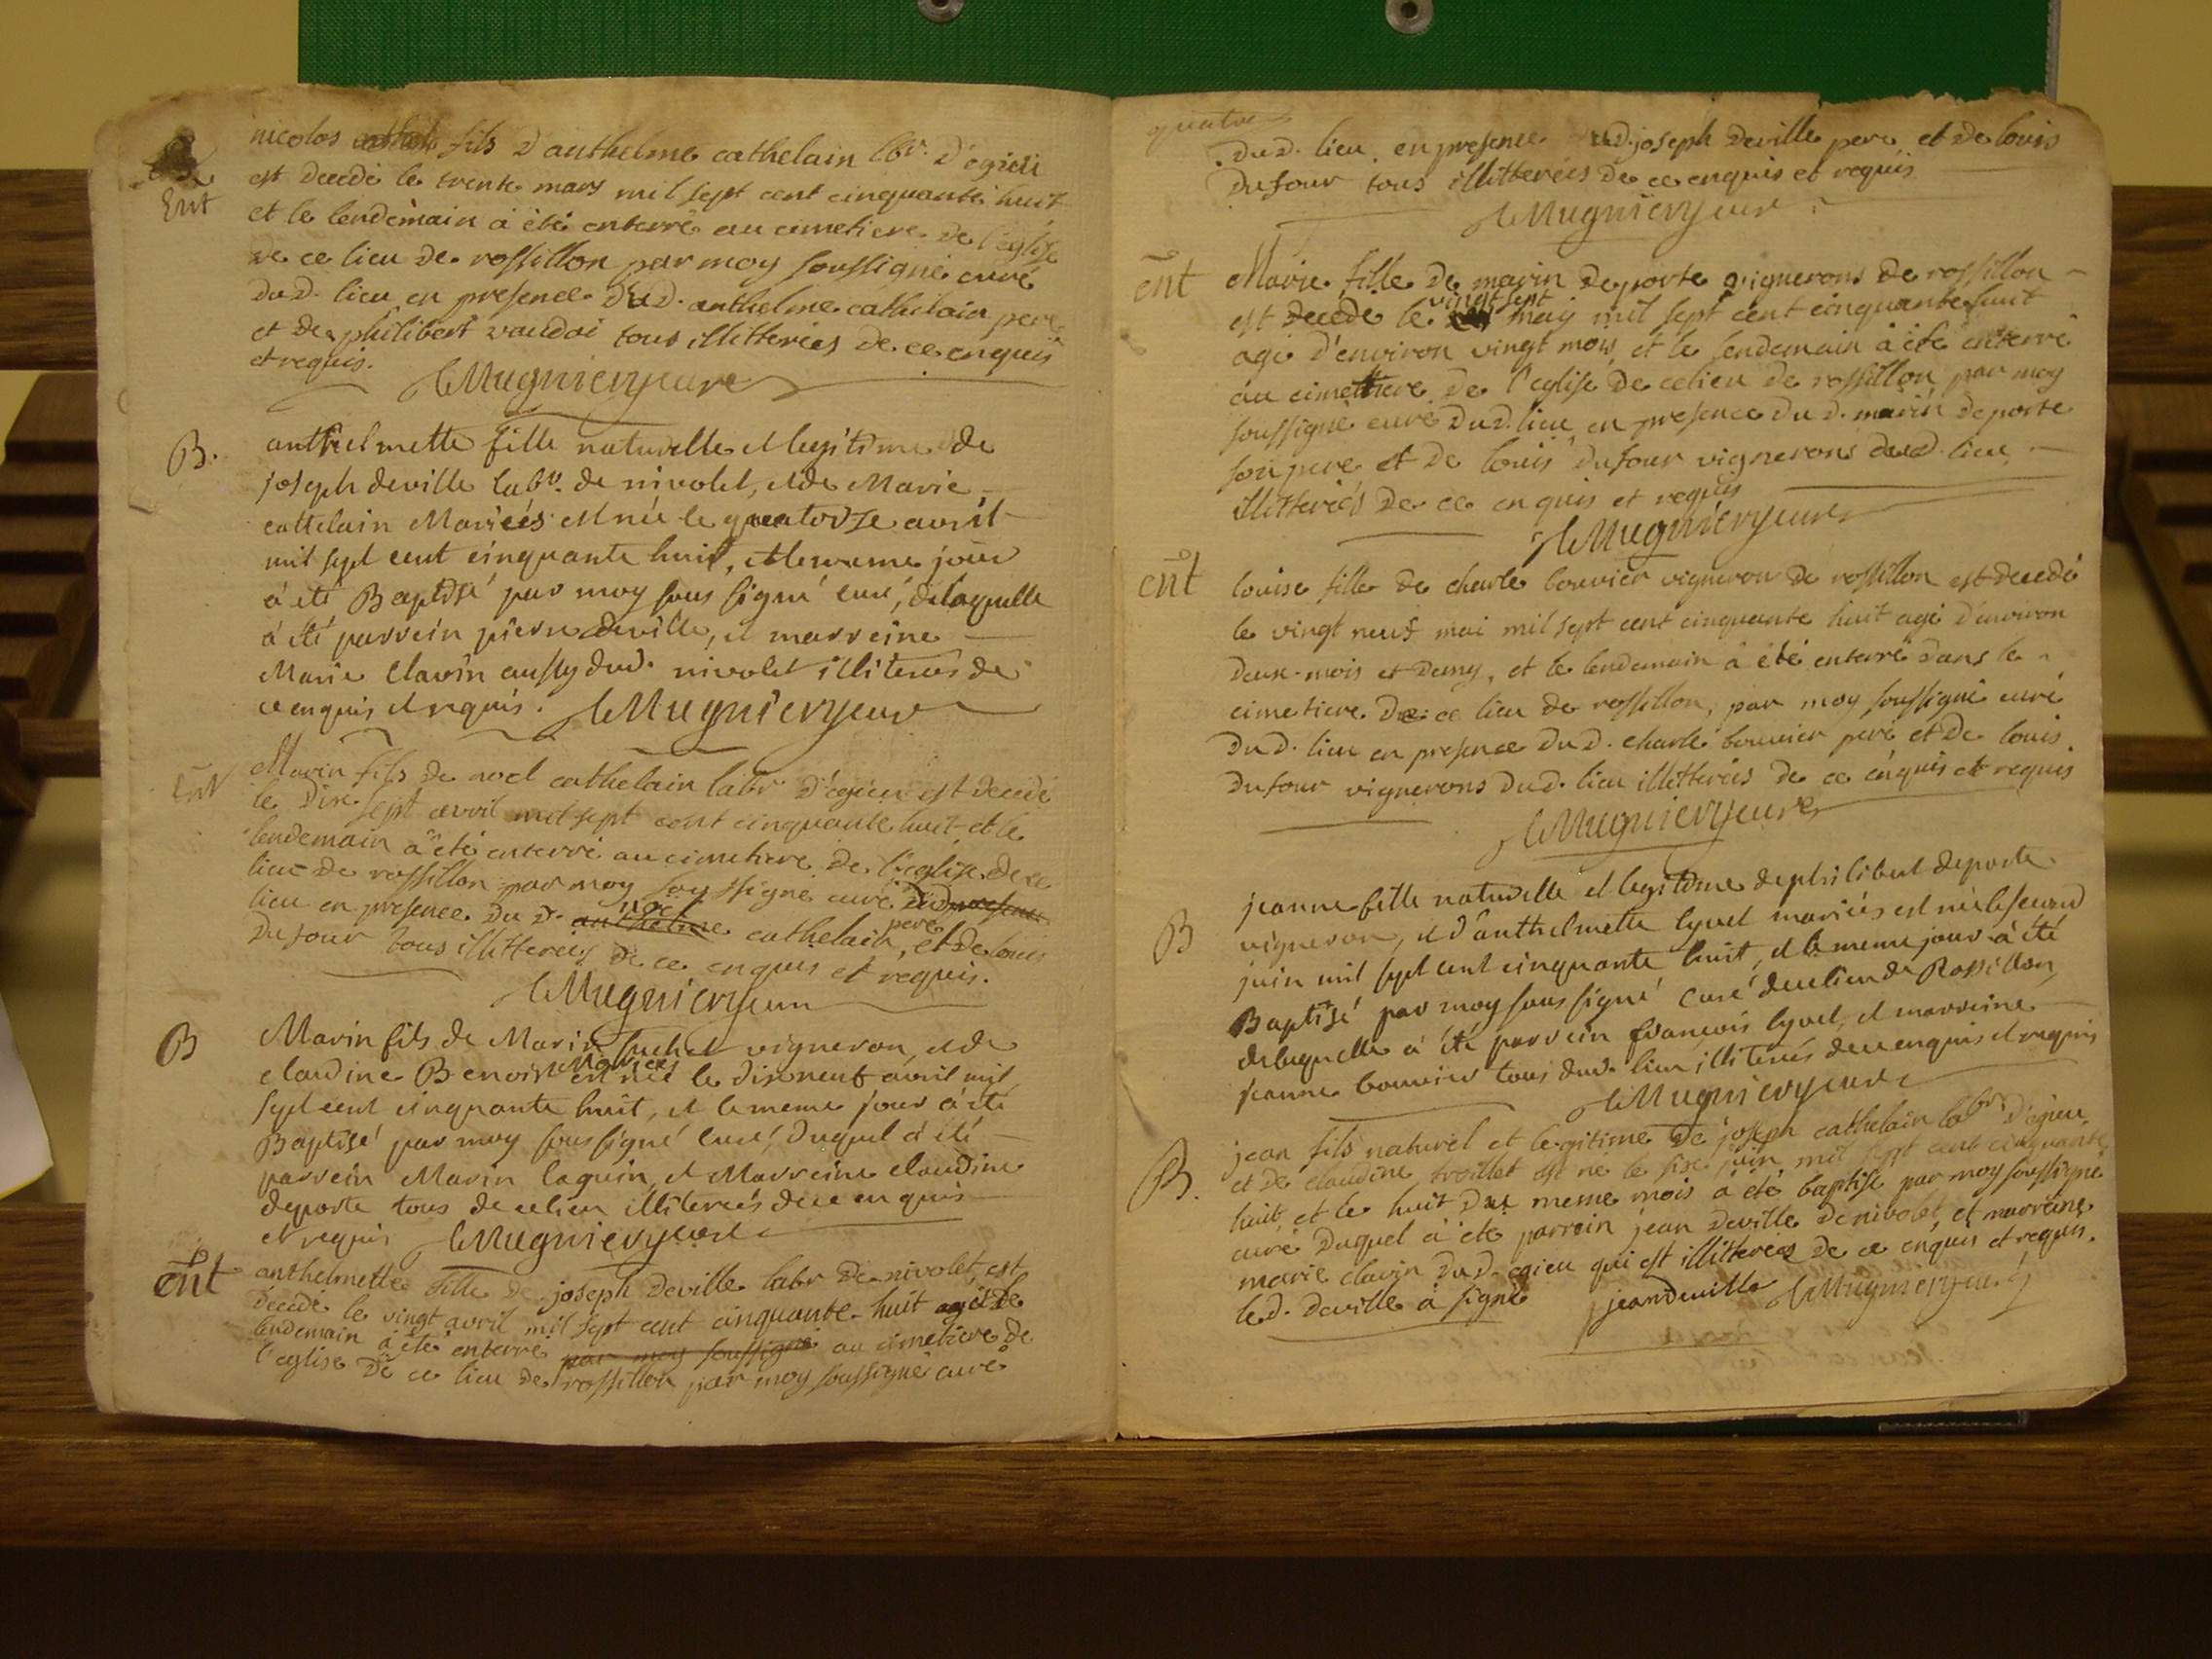 Ent
nicolas fils d'anthelme cathelain lbr. d'ogieu
est decedé le trente mars mil sept cent cinquante huit
et le lendemain à été enterré au cimetiere de l'eglise
de ce lieu de rossillon par moy soussigné curé
dud. lieu en presence dud. anthelme cathelain pere
et de philibert vaudoi tous illitterées de ce enquis
et requis.
leMugnieryeure
B.
anthelmette fille naturelle et legitime de
joseph deville labr. de nivolet, et de Marie
cattelain Mariées est née le quatorze avril
mil sept cent cinquante huit, et le meme jour
à été Baptisé par moy sous signé curé, de laquelle
à été parrein pierre deville, et marreine
Marie Clavin aussy dud. nivolet illiterés de
ce enquis et requis. leMugnieryeure
Ent
Marin fils de noel cathelain labr d'ogieu est decedé
le dix sept avril mil sept cent cinquante huit et le
lendemain à été enterré au cimetiere de l'eglise de ce
lieu de rossillon par moy soussigné curé dud presence
lieu en presence du d. anthelme noel cathelain pere, et de louis
Dufour tous illitterées de ce enquis et requis.
leMugnieryeure
B
Marin fils de Marin vigneron, et de
claudine Benoist Mariees est née le dix neuf avril mil
sept cent cinquante huit, et le meme jour à été
Baptisé par moy sous signé curé, duquel à été
parrein Marin laguin, et Marreine claudine
deporte tous de ce lieu illiterés de ce enquis
et requis leMugnieryeure
ent
anthelmette fille de joseph deville labr de nivolet, est
decedé le vingt avril mil sept cent cinquante huit et le
lendemain à été enterré par moy soussigné au cimetiere de
l'eglise de ce lieu de rossillon par moy soussigné curé
quatre
dud. lieu en presence dud. joseph deville pere et de louis
Dufour tous illitterées de ce enquis et requis
leMugnieryeure
ent
Marie fille de marin deporte vignerons de rossillon
est decedé le vingt sept may mil sept cent cinquante huit
agé d'environ vingt mois, et le lendemain à été enterré
au cimettiere de l'eglise de ce lieu de rossillon par moy
soussigné curé dud. lieu en presence du d. marin deporte
son pere et de louis dufour vignerons dud. lieu
illitterés de ce enquis et requis
leMugnieryeure
ent
louise fille de charle bouvier vigneron de rossillon est decedé
le vingt neuf mai mil sept cent cinquante huit agé d'environ
deux mois et demy, et le lendemain à été enterré dans le
cimetiere de ce lieu de rossillon, par moy soussigné curé
du d. lieu en presence du d. charle bouvier pere et de louis
dufour vignerons dud. lieu illitterées de ce enquis et requis
leMugnieryeure
B
jeanne fille naturelle et legitime de philibert deporte
vigneron, et d'anthelmette lyvet mariées est née le second
juin mil sept cent cinquante huit, et le meme jour à été
Baptisé par moy sous signé curé de ce lieu de Rossillon,
de laquelle à été parrein francois lyvet, et marreine
jeanne bouvier tous dud. lieu illiterés de ce enquis et requis
leMugnieryeure
B.
jean fils naturel et legitime de joseph cathelain labr d'ogieu
et de claudine troillet est né le six juin mil sept cent cinquante
huit, et le huit du meme mois à été baptisé par moy soussigné
curé duquel à été parrein jean deville de nivolet, et marreine
marie clavin du d. ogieu qui est illitterées de ce enquis et requis.
le d. deville à signé jean deville leMugnieryeure